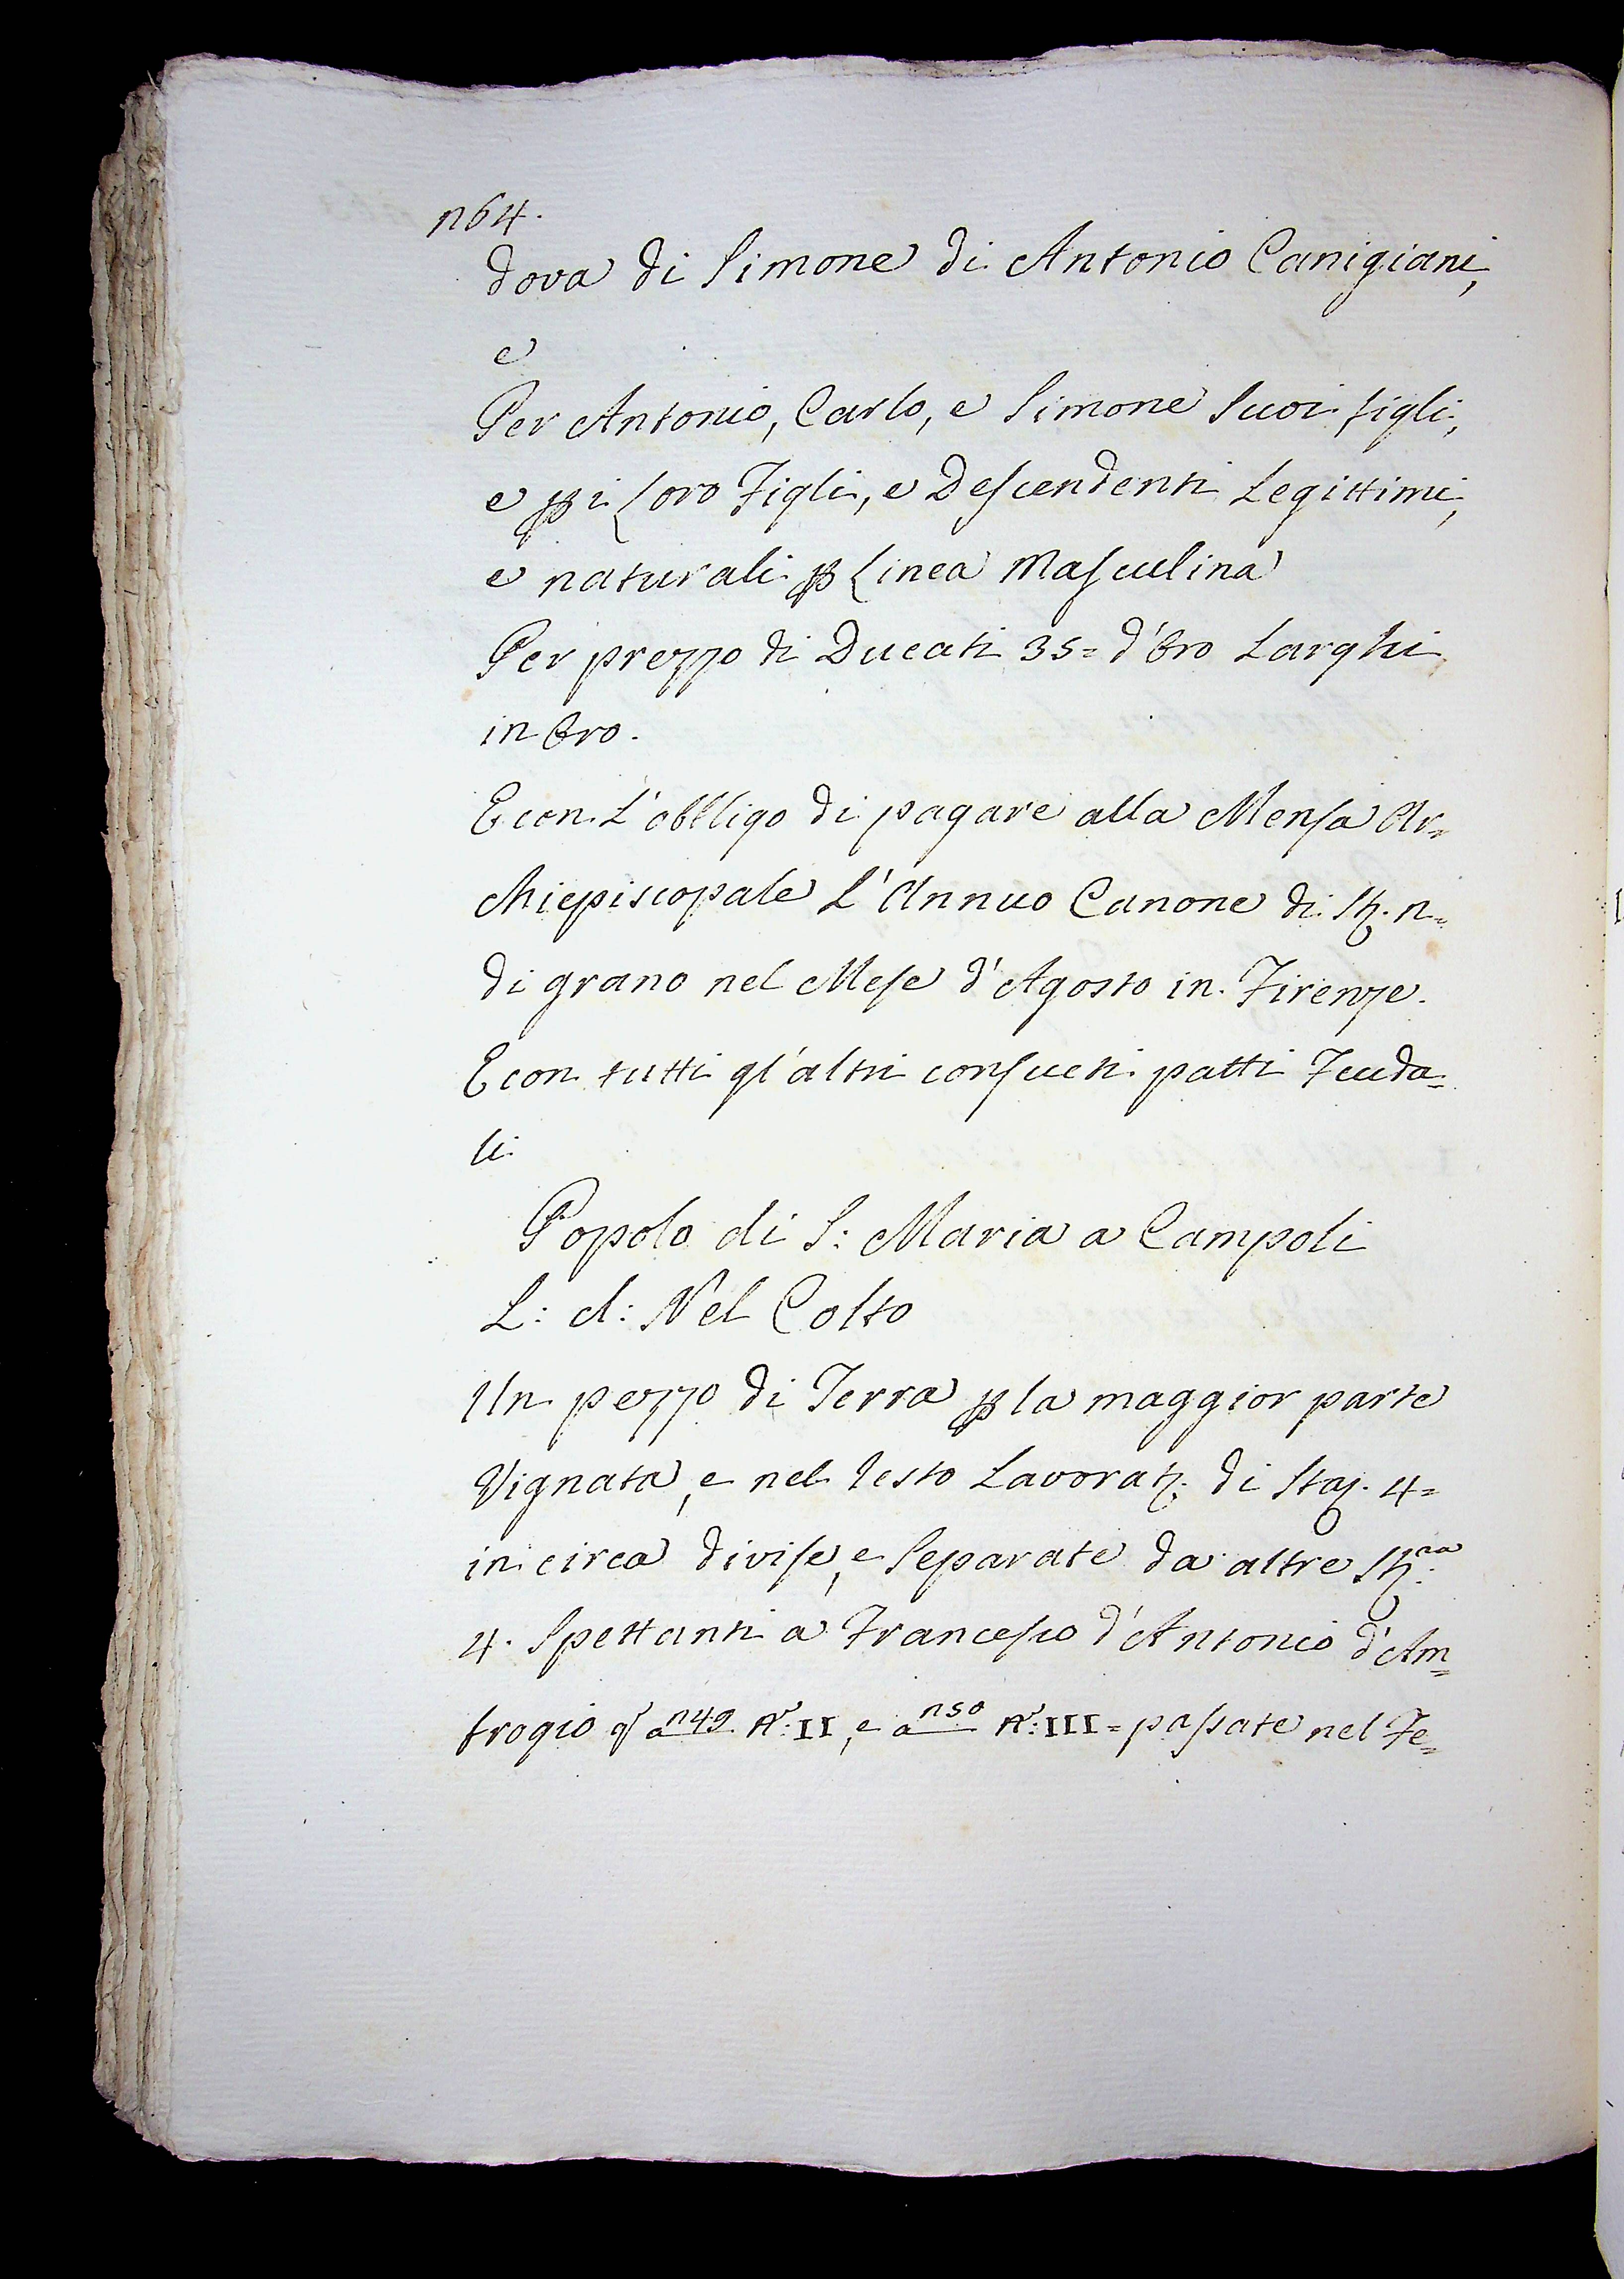 1164.
dova di Simone di Antonio Canigiani,
e
Per Antonio, Carlo, e Simone Suoi figli,
e p i Loro Figli, e Descendenti Legittimi,
e naturali p Linea Masculina
Per prezzo di Ducati 35= d'Oro Larghi
in Oro.
E con L'obbligo di pagare alla Mensa Ar=
chiepiscopale L'Annuo Canone di St. 11=
di grano nel Mese d'Agosto in Firenze.
E con tutti gl'altri consueti patti Feuda=
li
Popolo di S: Maria a Campoli
L: d: Nel Colto
Un pezzo di Terra p la maggior parte
Vignata, e nel resto Lavorat: di Staj. 4=
in circa divise, e Separate da altre St:ra
4. Spettanti a Francesco d'Antonio d'Am=
brogio q a 1149 N: II, e a 1150 N: III= passate nel Fe=